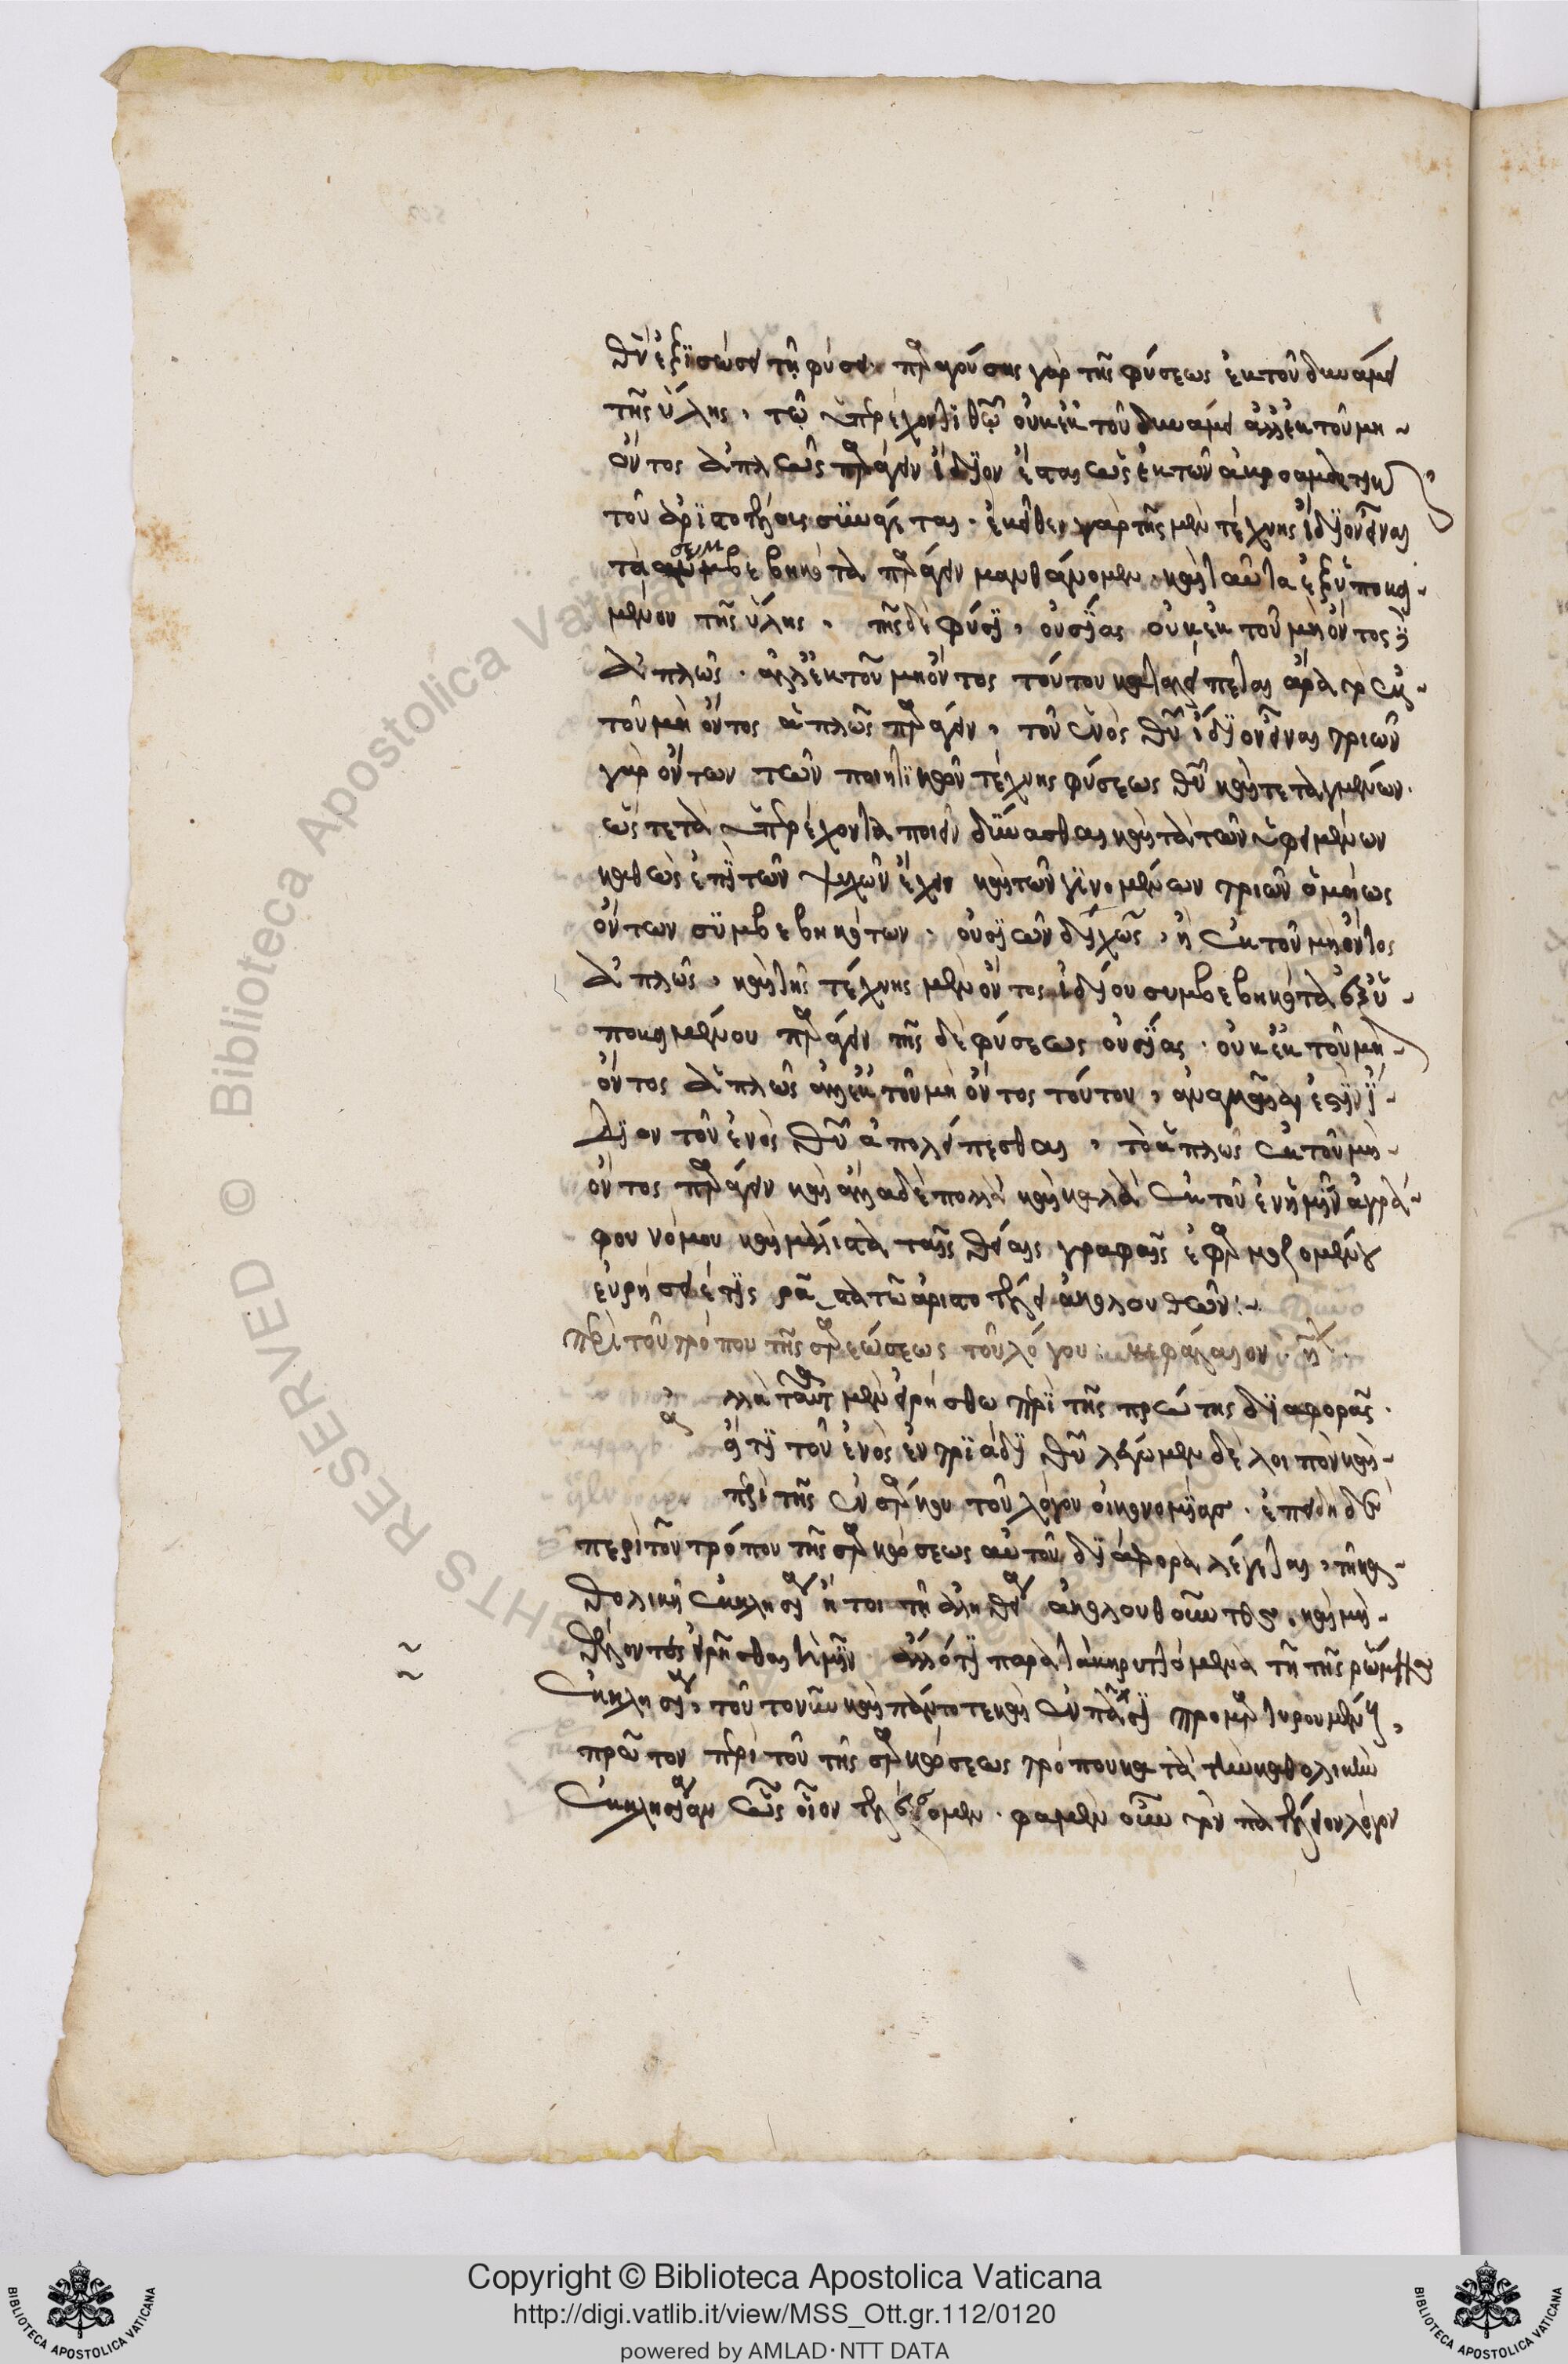 θῦ ἐξϊσώσει τῇ φύσει παραγούσης γὰρ τῆς φύσεως ἐκ τοῦ δυνάμει
τῆς ὕλης, τῷ ὑπερέχοντϊ θῷ οὐκ ἐκ τοῦ δυνάμει ἀλλ' ἐκ τοῦ μη
ὄντος ἁπλῶς παράγειν ἴδϊον ἔσται ὡς ἐκ τῶν
τοῦ ἀρϊστοτέλους συνάγεται. ἐκεῖθεν γὰρ τῆς μὲν τέχνης ἴδϊον εἶναι
τὰ συμβεβηκότα παράγειν μανθάνομεν. καὶ ταῦτα ἐξ ὑποκει
μένου τῆς ὕλης, τῆς δὲ φύσεως, οὐσΐας οὐκ ἐκ τοῦ μὴ ὄντος
ἁπλῶς. ἀλλ' ἐκ τοῦ μὴ ὄντος τούτου καταλείπεται ἄρα τὸ ἐκ
τοῦ μὴ ὄντος ἁπλῶς παράγειν, τοῦ ἑνὸς θῦ ἴδϊον εἶναι τριῶν
γὰρ ὄντων τῶν ποιητϊκῶν τέχνης φύσεως θῦ καὶ τεταγμένων.
ὥστε τὰ ὑπερέχοντα ποιεῖν δύνασθαι καὶ τὰ τῶν ὑφειμένων
καθὼς ἐπῒ τῶν ψυχῶν ἔχειν καὶ τῶν γϊνομένων τριῶν ὁμοίως
ὄντων συμβεβηκότων, οὐσϊῶν δϊχῶς, ἢ ἐκ τοῦ μὴ ὄντος
ἁπλῶς, καὶ τῆς τέχνης μὲν ὄντος ἰδΐου συμβεβηκότα ἐξ ὑ
ποκειμένου παράγειν τῆς δὲ φύσεως οὐσΐας. οὐκ ἐκ τοῦ μη
ὄντος ἁπλῶς ἀλλ' ἐκ τοῦ μὴ ὄντος τούτου, ἀναγκαῖόν ἐστϊν ἴ
δϊον τοῦ ἑνὸς θῦ ἀπολείπεσθαι, τὸ ἁπλῶς ἐκ τοῦ μη
ὄντος παράγειν καὶ ἄλλα δὲ πολλὰ καὶ καλὰ ἐκ τοῦ ἐν ἡμῖν ἀγρά
φου νόμου καὶ μάλιστα ταῖς θείαις γραφαῖς
εὑρήσει τῒς ῥᾷστα τῷ ἀριστοτέλει ἀκολουθῶν:~
περὶ τοῦ τρόπου τῆς σαρκώσεως τοῦ λόγου: κεφάλαιον. η.
Ἀλλὰ ταῦτα μὲν εἰρήσθω περῒ τῆς πρώτης δϊαφορᾶς.
ὅτϊ τοῦ ἑνὸς ἐν τρϊάδϊ θῦ λέγωμεν δὲ λοιπὸν καὶ
περὶ τῆς ἐν σαρκὶ τοῦ λόγου οἰκονομΐας. ἐπειδὴ δὲ
περὶ τοῦ τρόπου τῆς σαρκώσεως αὐτοῦ δϊάφορα λέγεται, τῇ κα
θολικῇ ἐκκλησΐᾳ ἤτοι τῇ ἀληθείᾳ ἀκολουθοῦντες, καὶ μὴ
θέλοντες εἰρῆσθαι ἡμῖν ἄλλό τϊ παρὰ τὰ κηρυττόμενα τῇ τῆς ῥώμης
ἐκκλησΐᾳ, τοῦτο νῦν καὶ πάντοτε καὶ ἐν πᾶσϊ προμαρτυρούμενοι,
πρῶτον περὶ τοῦ τῆς σαρκώσεως τρόπου κατὰ τὴν καθολικὴν
ἐκκλησΐαν ὡς οἷόν τε λέξομεν. φαμὲν οὖν τὸν λόγον